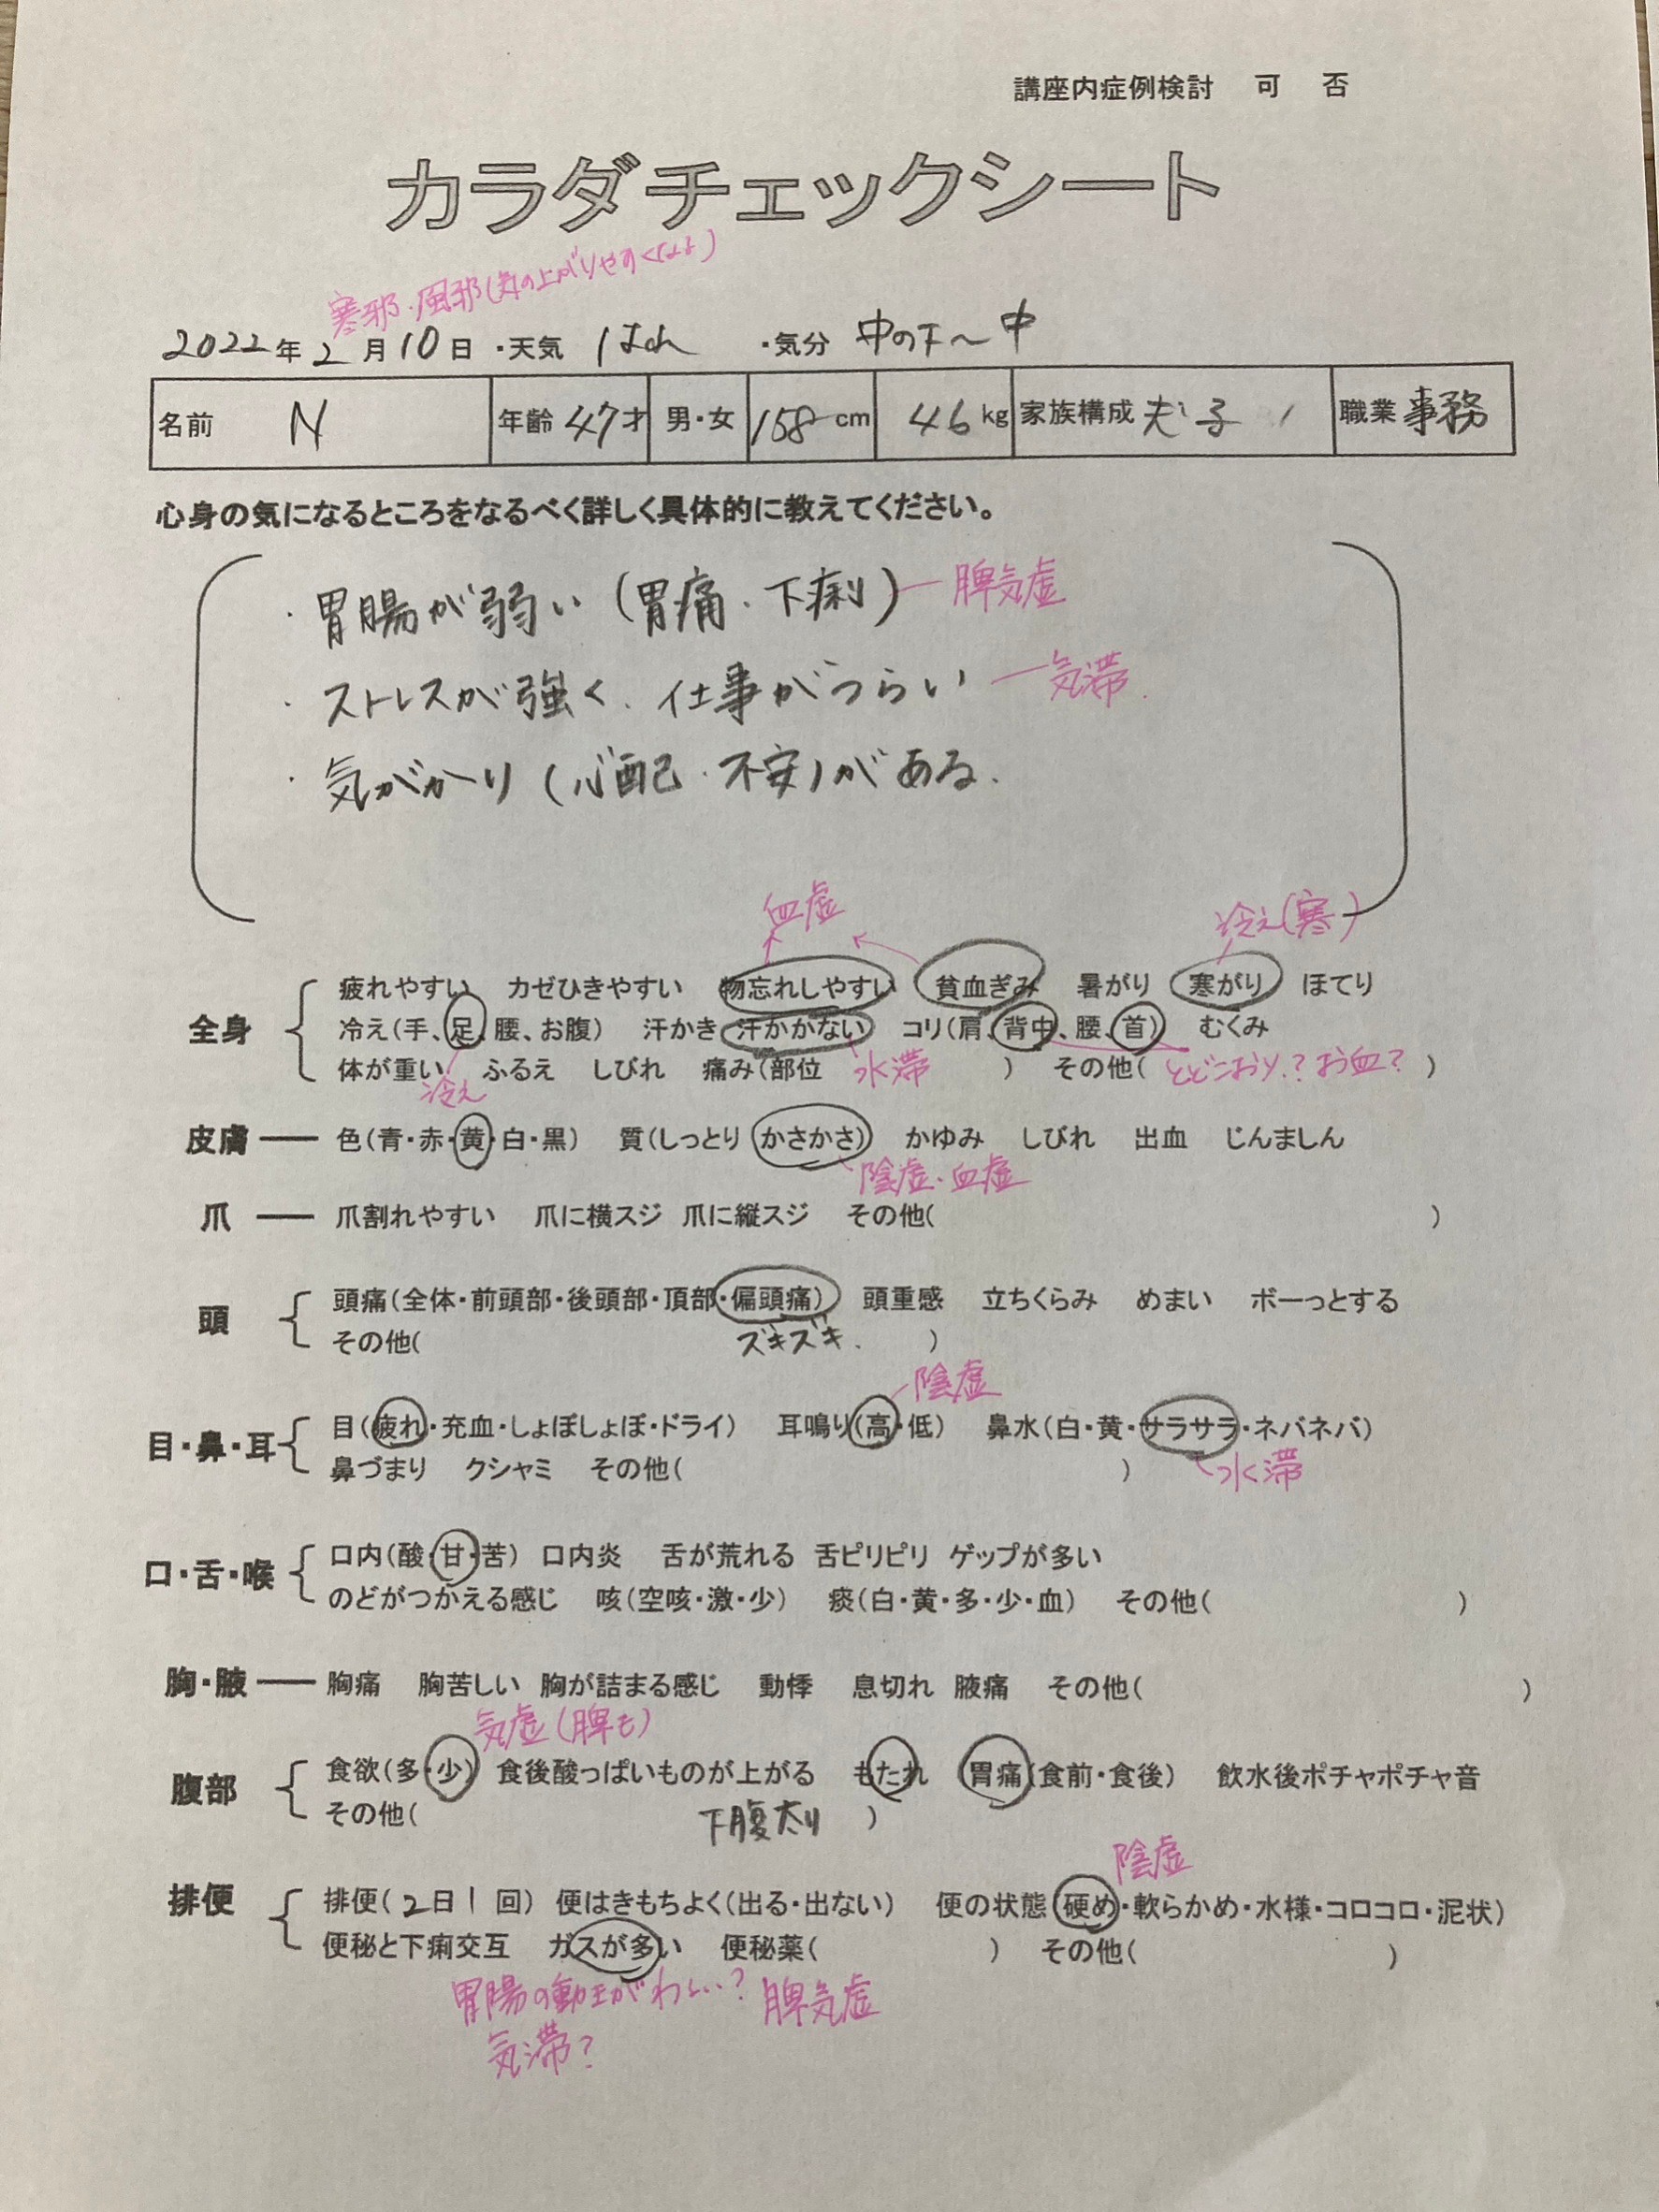 講座内症例検討 可 否
カラダチェックシート
寒邪・風邪(気の上がりやすくなる)
2022年2月10日 ・天気 はれ ・気分 中の下〜中
名前 N 年齢 47才 男・女 158cm 46kg 家族構成 夫、子 職業 事務
心身の気になるところをなるべく詳しく具体的に教えてください。
・胃腸が弱い(胃痛・下痢) 脾気虚
・ストレスが強く、仕事がつらい 気滞
・気がかり(心配・不安)がある.
血虚 冷え(寒)
疲れやすい カゼひきやすい 物忘れしやすい 貧血ぎみ 暑がり 寒がり ほてり
全身 冷え(手、足、腰、お腹) 汗かき 汗かかない コリ(肩、背中、腰、首) むくみ
体が重い ふるえ しびれ 痛み(部位 水滞 ) その他( とどこおり?お血? )
冷え
皮膚 色(青・赤・黄・白・黒) 質(しっとり かさかさ) かゆみ しびれ 出血 じんましん
陰虚・血虚
爪 爪割れやすい 爪に横スジ 爪に縦スジ その他( )
頭 頭痛(全体・前頭部・後頭部・頂部・偏頭痛) 頭重感 立ちくらみ めまい ボーっとする
その他( ズキズキ. )
陰虚
目・鼻・耳 目(疲れ・充血・しょぼしょぼ・ドライ) 耳鳴り(高・低) 鼻水(白・黄・サラサラ・ネバネバ)
鼻づまり クシャミ その他( ) 水滞
口・舌・喉 口内(酸・甘・苦) 口内炎 舌が荒れる 舌ピリピリ ゲップが多い
のどがつかえる感じ 咳(空咳・激・少) 痰(白・黄・多・少・血) その他( )
胸・腋 胸痛 胸苦しい 胸が詰まる感じ 動悸 息切れ 腋痛 その他( )
気虚(脾も)
腹部 食欲(多・少) 食後酸っぱいものが上がる もたれ 胃痛(食前・食後) 飲水後ポチャポチャ音
その他( 下腹太り )
陰虚
排便 排便(2日1回) 便はきもちよく(出る・出ない) 便の状態(硬め・軟らかめ・水様・コロコロ・泥状)
便秘と下痢交互 ガスが多い 便秘薬( ) その他( )
胃腸の動きがわるい?脾気虚
気滞?